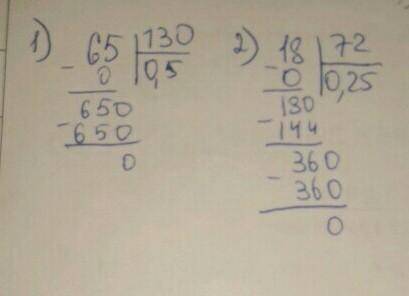 1) 65 | 130
- 0 | 0,5
650
- 650
0
2) 18 | 72
- 0 | 0,25
180
- 144
360
- 360
0